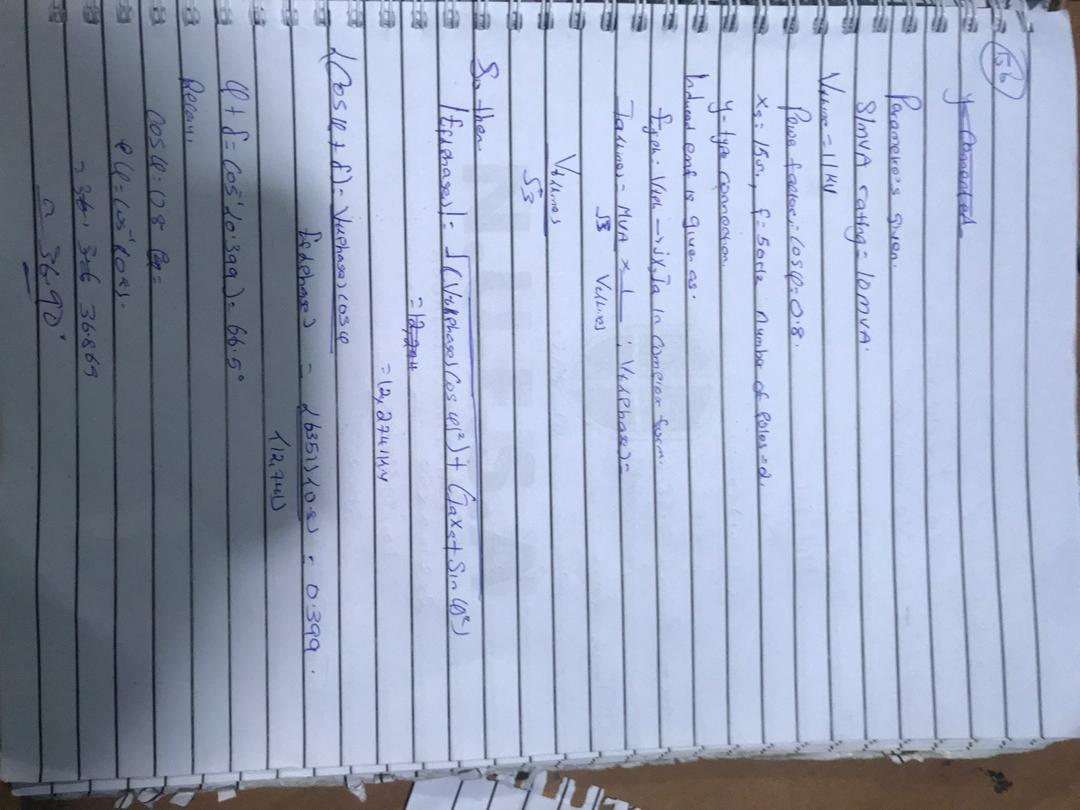 15b
Y-Connected
Parameters given.
S/MVA rating = 10MVA.
Vt(line) = 11kV
Power factor = cosφ = 0.8.
Xs = 15Ω, f = 50Hz number of poles = 2.
Y = Y connection.
Induced emf is given as.
Efph = Vtph → jXsIa in complex form.
Ia(line) = MVA × 1 ; Vt(phase) =
√3 Vt(line)
Vt(line)
√3
So then.
|Ef(phase)| = √(Vt(phase) cosφ)²) + (IaXs + Sinφ²)
= 12,744
= 12,2741kV
(Cosφ + δ) = Vt(phase) cosφ
Ef(phase) = (6351)(0.8) = 0.399.
(12,741)
φ + δ = Cos⁻¹(0.399) = 66.5°
Recall.
Cosφ = 0.8
φ = Cos⁻¹(0.8).
= 36.869
= 36.90°